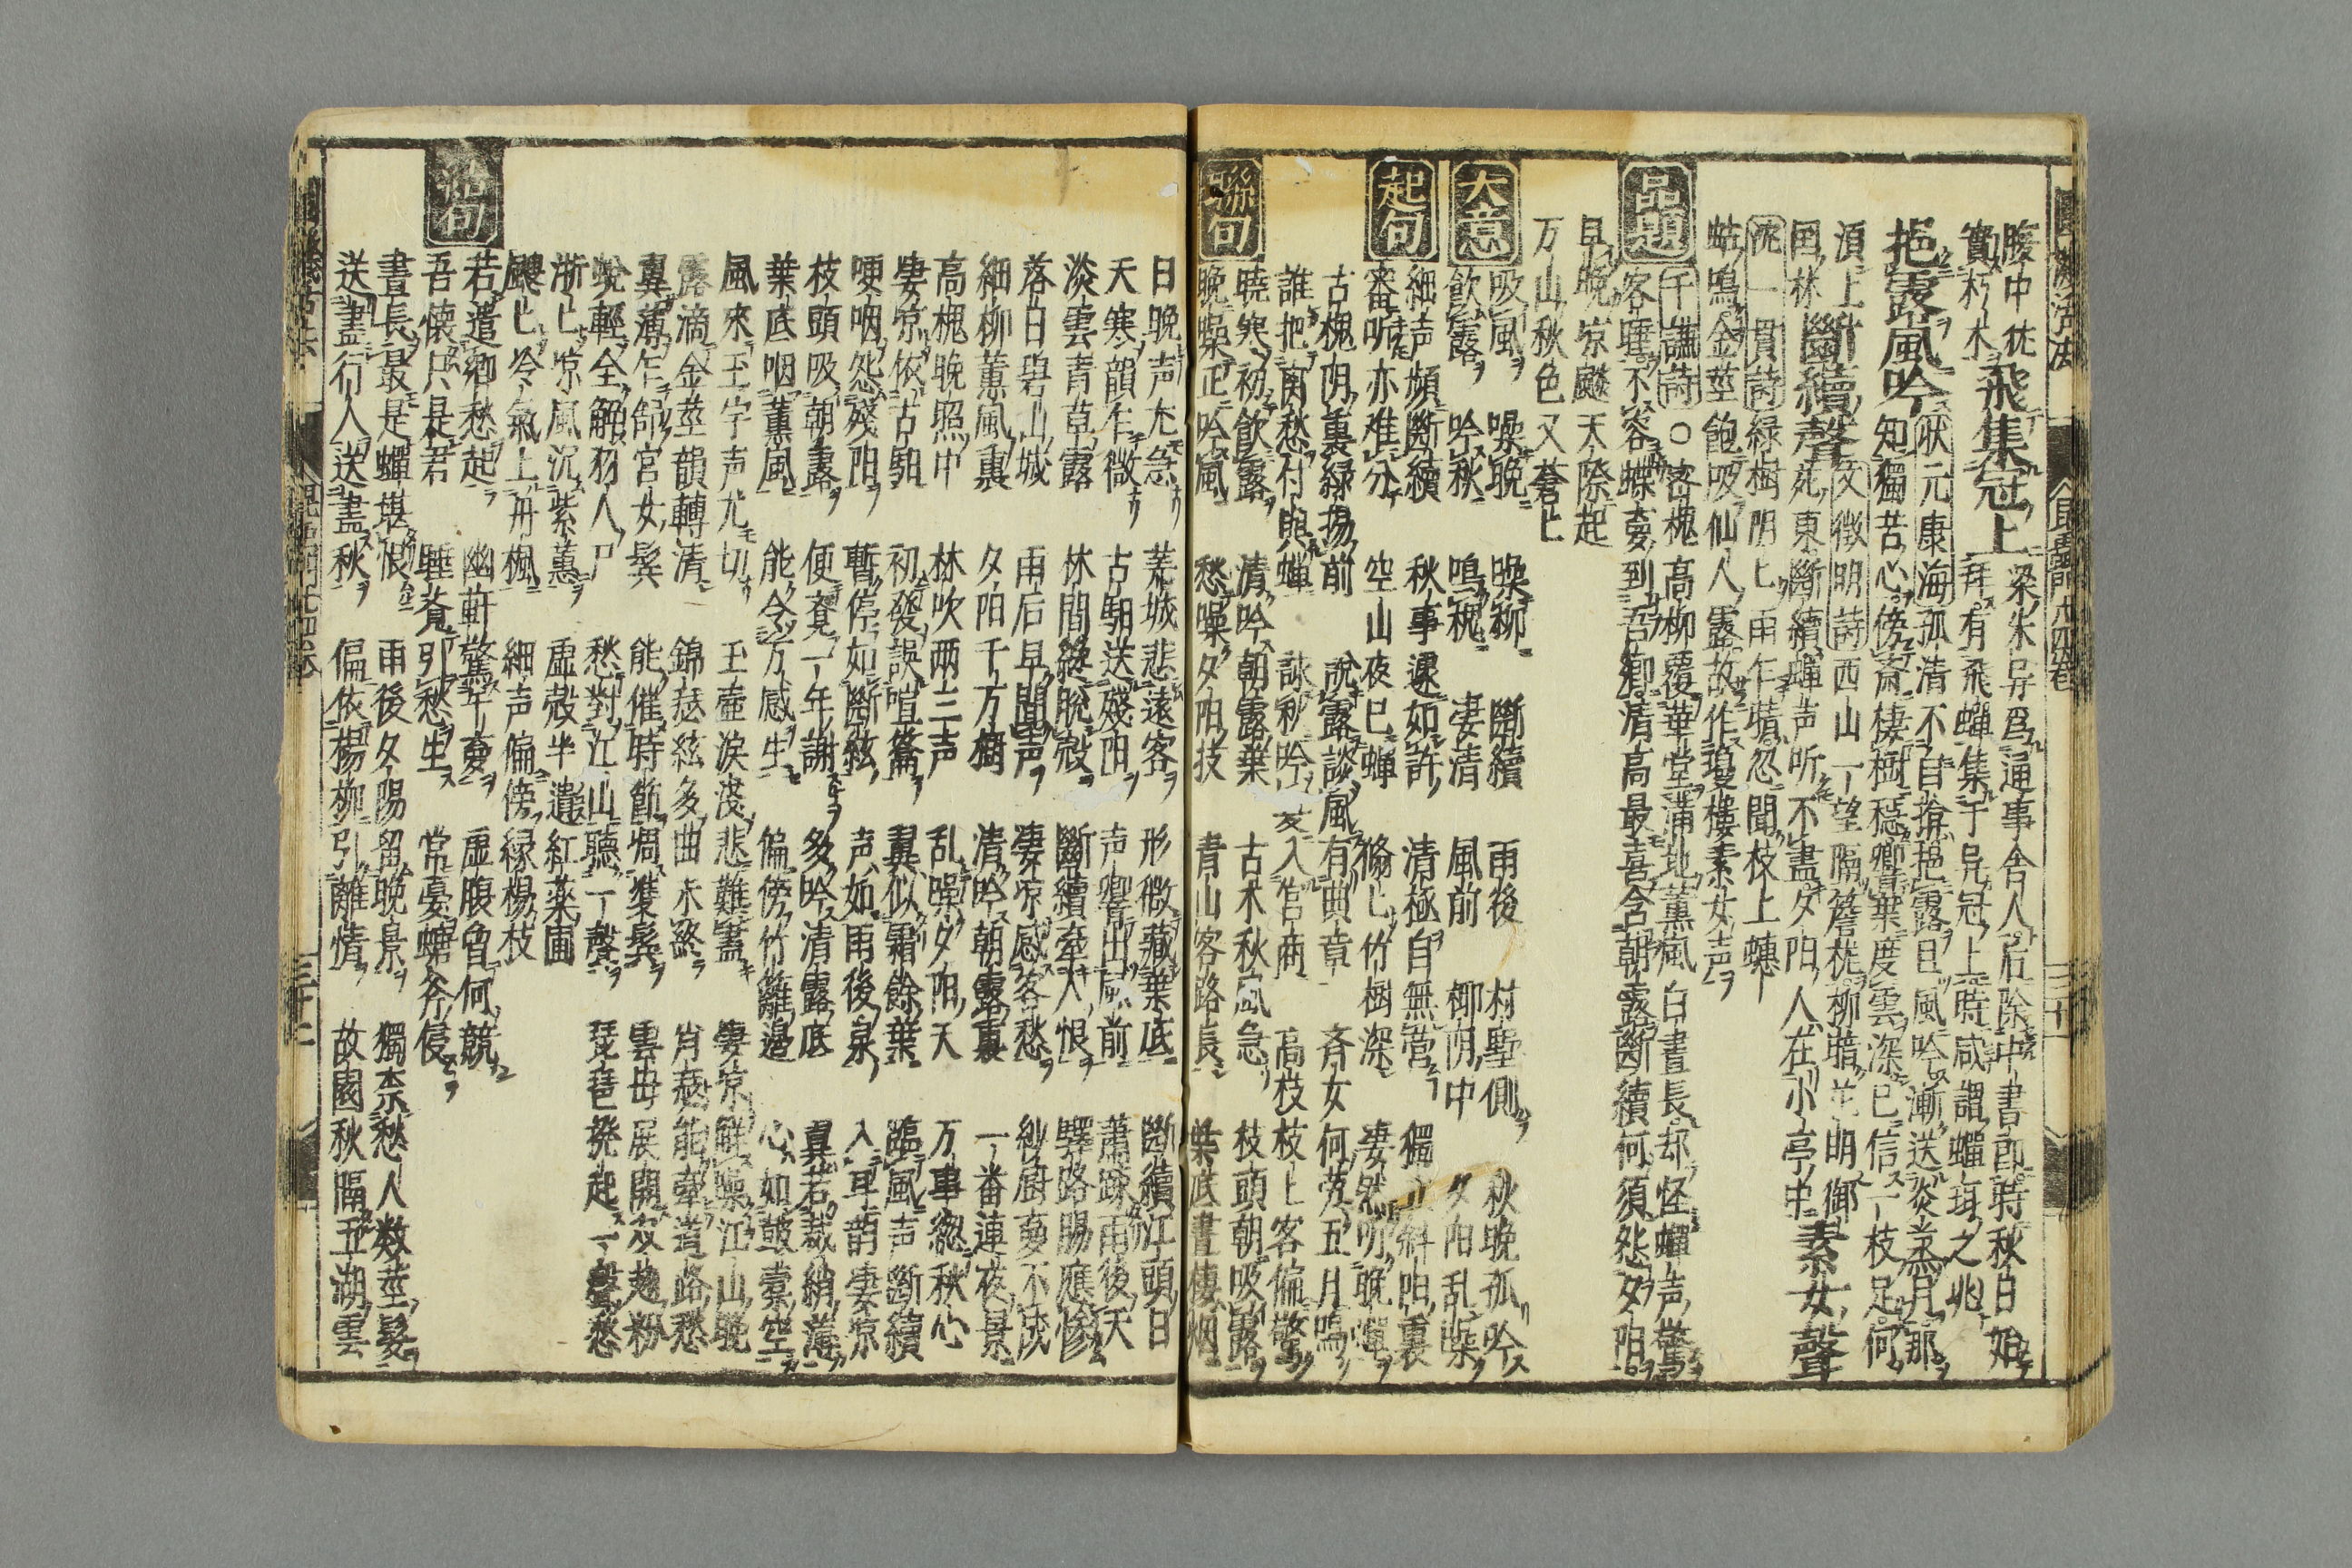 腹中从
實朽木飛集冠上梁朱异爲通事舍人后除中書郎時秋日始
拜有飛蟬集于异冠上時咸謂蟬珥之兆
挹露風吟状元康海孤清不自揜挹露且風吟漸送炎蒸月那
知獨苦心傍斎棲樹穏卿葉度雲深已信一枝足何
須上斷續聲文徴明詩西山一望隔簷栊柳暗花明御
田林苑東断續蟬声听不盡夕阳人在小亭中素女聲
沈一貫詩緑樹阴〻雨乍晴忽聞枝上蟪
蛄鳴金莖飽吸仙人露故作瓊樓素女声
品題
千讌詩○密槐高柳覆華堂蒲地薫風白晝長却怪蟬声驚
客睡不容蝶夢到吾卿清高最喜含朝露断續何須怨夕阳
早晩凉飈天際起
万山秋色又蒼〻
大意
吸風 噪晩 噪柳 斷續 雨後 村墅側 秋晩孤吟
飲露 吟秋 鳴槐 凄清 風前 柳阴中 夕阳乱噪
起句
細声頻断續 秋事遽如許 清極自無営 獨 斜阳裏
審听亦难分 空山夜已蟬 翛〻竹樹深 凄然听晩蟬
古槐阴裏緑揚前 説露談風有曲章 斉女何劳五月鳴
誰把闲愁付與蟬 詠秋吟 入宫商 高枝枝上客偏驚
聯句
暁寒初飲露 清吟朝露葉 古木秋風急 枝頭朝吸露
晩噪正吟風 愁噪夕阳技 青山客路長 葉底晝棲烟
日晩声尤急 荒城悲遠客 形微藏葉底 断續江頭日
天寒韻乍微 古驲送殘阳 声響出風前 蕭踈雨後天
淡雲青草露 林間纔脱殻 斷續牽人恨 驛路賜應惨
落日碧山城 雨后早聞声 凄凉感客愁 紗厨夢不成
細柳薫風裏 夕阳千万樹 清吟朝露裏 一番連夜景
高槐晩照中 林吹两三声 乱噪夕阳天 万事緫秋心
凄凉依古驲 初發誤喧篇 翼似霜餘葉 臨風声断續
哽咽怨殘阳 暫停如断絃 声如雨後泉 入耳韵凄凉
枝頭吸朝露 便覚一年謝 多吟清露底 真若裁綃薄
葉底咽薫風 能令万感生 偏傍竹籬邉 心如皷橐空
風來玉宇声尤切 玉壷涙淺悲難盡 凄凉鮮噪江山晩
露滴金莖韻轉清 錦瑟絃多曲未終 肖瑟能牽道路愁
翼薄乍餙宫女鬂 能催時節凋雙鬂 雲母展開 翅粉
蛻輕全解羽人尸 愁對江山聴一聲 琵琶撥起一聲愁
浙〻凉風沉紫蕙 虚殻半遺紅薬圃
飋〻冷氣上丹楓 細声偏傍緑楊枝
若遣卿愁起 幽軒驚午夢 虚腹曾何競
吾懐只是君 睡覚引愁生 常憂螗斧侵
結句
書長最是蟬堪恨 雨後夕陽留晩景 獨奈愁人数莖髪
送盡行人送盡秋 偏依揚柳引離情 故國秋隔五湖雲